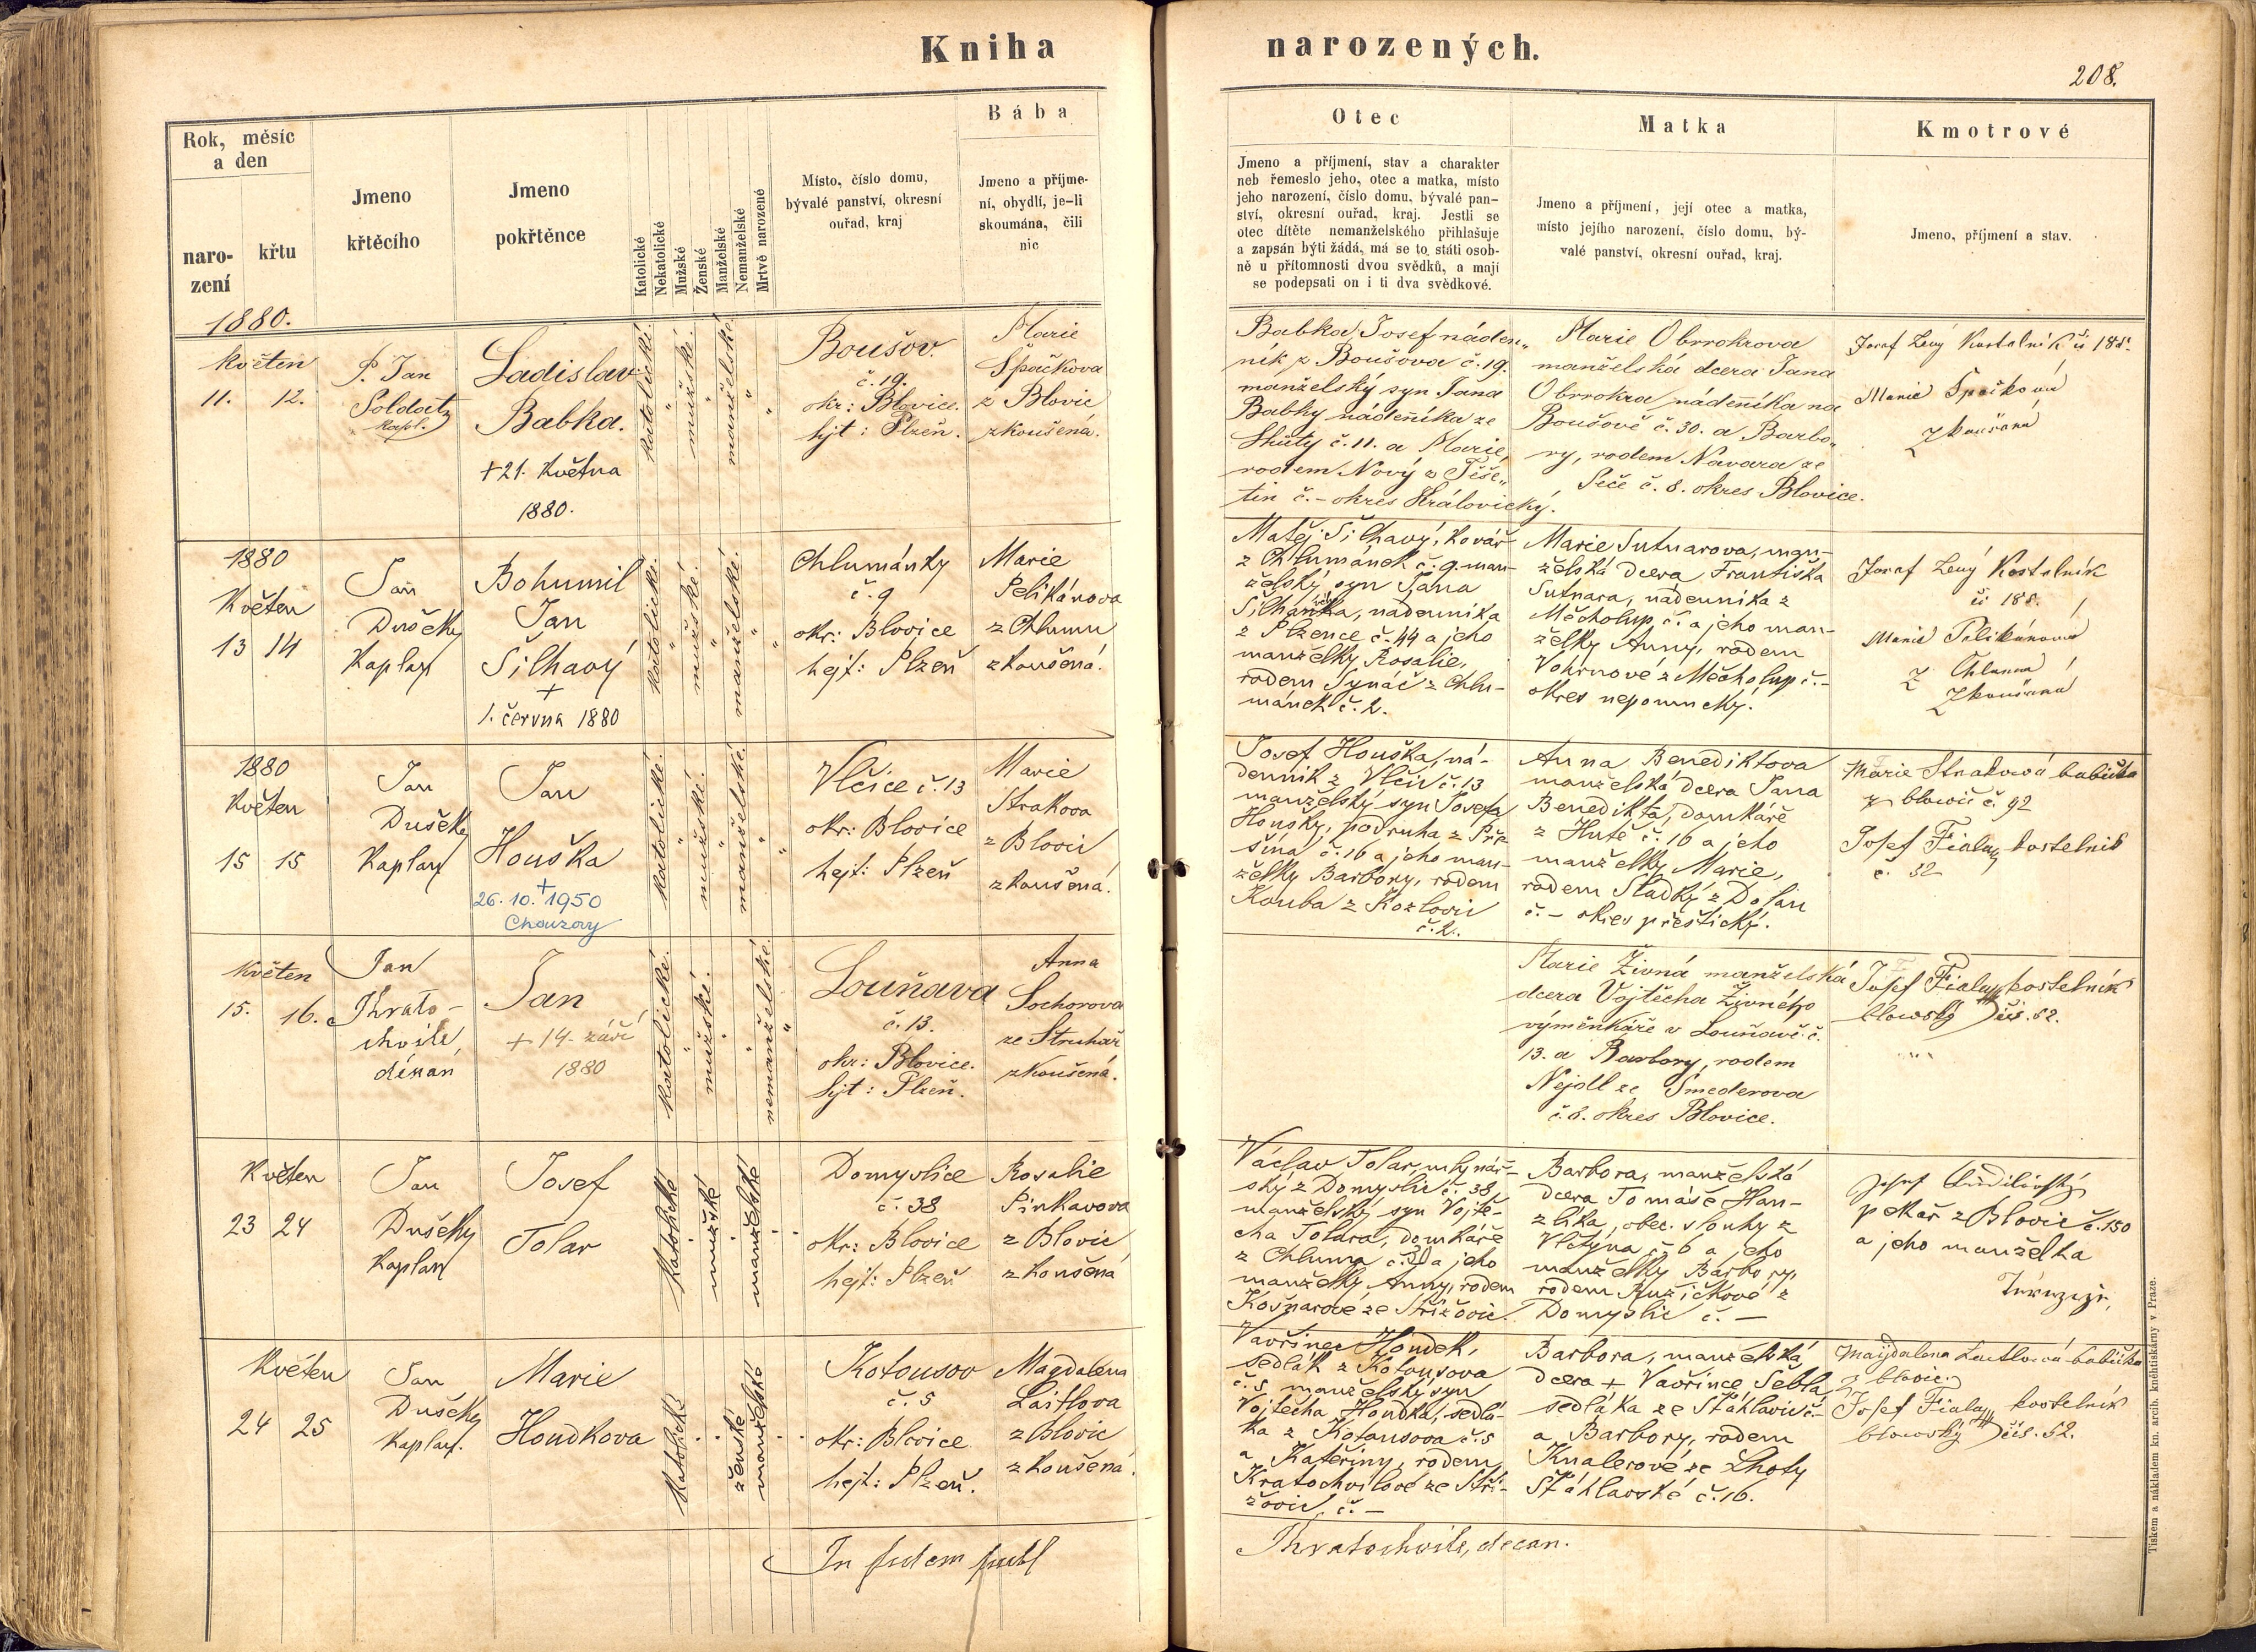 Kniha narozených.
208.
Rok, měsíc
a den
naro-
zení
křtu
Jmeno
křtěcího
Jmeno
pokřtěnce
Katolické
Nekatolické
Mužské
Ženské
Manželské
Nemanželské
Mrtvě narozené
Místo, číslo domu,
bývalé panství, okresní
ouřad, kraj
Bába
Jmeno a příjme-
ní, obydlí, je-li
skoumána, čili
nic
Otec
Jmeno a příjmení, stav a charakter
neb řemeslo jeho, otec a matka, místo
jeho narození, číslo domu, bývalé pan-
ství, okresní ouřad, kraj. Jestli se
otec dítěte nemanželského přihlašuje
a zapsán býti žádá, má se to státi osob-
ně u přítomnosti dvou svědků, a mají
se podepsati on i ti dva svědkové.
Matka
Jmeno a příjmení, její otec a matka,
místo jejího narození, číslo domu, bý-
valé panství, okresní ouřad, kraj.
Kmotrové
Jmeno, příjmení a stav.
1880.
Květen
11. 12.
P. Jan
Soldatz
kapl.
Ladislav
Babka.
+ 21. Května
1880.
katolické.
mužské.
manželské.
Boušov.
č. 19.
okr: Blovice.
hjt: Plzeň.
Marie
Špačkova
z Blovic
zkoušená.
Babka Josef náden„
ník z Boušova č. 19.
manželský syn Jana
Babky nádeníka ze
č. 11. a Marie,
rodem Nový z Těše„
tin č. – okres Královický.
Marie Obrrokrova
manželská dcera Jana
Obrrokra nádeníka na
Boušově č. 30. a Barbo„
ry, rodem Navara ze
Seče č. 8. okres Blovice.
Josef Lený Kostelník č 188.
Marie Špačková
zkoušená
1880
Květen
13 14
Jan
Dušek
Kaplan
Bohumil
Jan
Šilhavý
+
1. června 1880
katolické.
mužské.
manželské.
Chlumánky
č. 9
okr: Blovice
hejt: Plzeň
Marie
Pelikánova
z Chlumu
zkoušená.
Matěj Šilhavý, kovář
z Chlumánek č. 9. man-
želský syn Jana
nádenníka
z Plzence č. 44 a jeho
manželky Rosalie,
rodem Synáč z Chlu-
mánek č. 2.
Marie Sutnarova, man-
želská dcera Františka
Sutnara, nádenníka z
Měcholup č. a jeho man-
želky Anny, rodem
Vokrnové z Měcholup č. -
okres nepomucký.
Josef Lený Kostelník
č 188.
Marie Pelikánova
z Chlumu
zkoušená
1880
Květen
15 15
Jan
Dušek
Kaplan
Jan
Houška
+
26. 10. 1950
Chouzovy
katolické.
mužské.
manželské.
Vlčice č. 13
okr: Blovice
hejt: Plzeň
Marie
Strakova
z Blovic
zkoušená.
Josef Houška, ná-
denník z Vlčic č. 13
manželský syn Josefa
Houšky, podruha z Pře-
šína č. 16 a jeho man-
želky Barbory, rodem
Kouba z Kozlovic
č. 2.
Anna Benediktova
manželská dcera Jana
Benedikta, domkáře
z Hutě č. 16 a jeho
manželky Marie,
rodem Sladký z Dolan
č. – okres přeštický.
Marie Straková babička
z blovic č. 92
Josef Fiala, kostelník
č. 52
Květen
15. 16.
Jan
Krato-
chvíle,
děkan
Jan
+ 14. září
1880
katolické.
mužské.
nemanželské.
Louňava
č. 13.
okr: Blovice.
hjt: Plzeň.
Anna
Sochorova
ze Struhař
zkoušená.
Marie Živná manželská
dcera Vojtěcha Živného
výměnkáře v Louňavě č.
13. a Barbory, rodem
Nejdl ze Smederova
č. 6. okres Blovice.
Josef Fiala, kostelník
blowský čís. 52.
Květen
23 24
Jan
Dušek
Kaplan
Josef
Tolar
Katolické
mužské
manželské
Domyslice
č. 38
okr: Blovice
hejt: Plzeň
Rosalie
Pinkavova
z Blovic
zkoušená
Václav Tolar, mlynář-
ský z Domyslic č. 38,
manželský syn Vojtě-
cha Tolara, domkáře
z Chluma č. a jeho
manželky Anny, rodem
Košnarové ze Střížovic.
Barbora, manželská
dcera Tomáše Han-
zlíka, obec. slouhy z
Vlčtýna č. 6 a jeho
manželky Barbory,
rodem Růžičkové z
Domyslic č. —
Josef
pekař z Blovic č. 150
a jeho manželka
Květen
24 25
Jan
Dušek
Kaplan.
Marie
Houdkova
Katolické
ženské
manželské
Kotousov
č. 5
okr: Blovice
hejt: Plzeň.
Magdalena
Laitlova
z Blovic
zkoušená.
Vavřinec Houdek,
sedlák z Kotousova
č. 5 manželský syn
Vojtěcha Houdka, sedlá-
ka z Kotousova č. 5
a Kateřiny, rodem
Kratochvílové ze Stří-
žovic, č. –
Barbora, manželská
dcera + Vavřince Šebla,
sedláka ze Šťáhlavic č. –
a Barbory, rodem
Knalerové ze Lhoty
Šťáhlavské č. 16.
Magdalena Laitlová babička
z blovic.
Josef Fiala, kostelník
blowský čís. 52.
In fidem publ
Kratochvíle, decan.
Tiskem a nákladem kn. arcib. knihtiskárny v Praze.